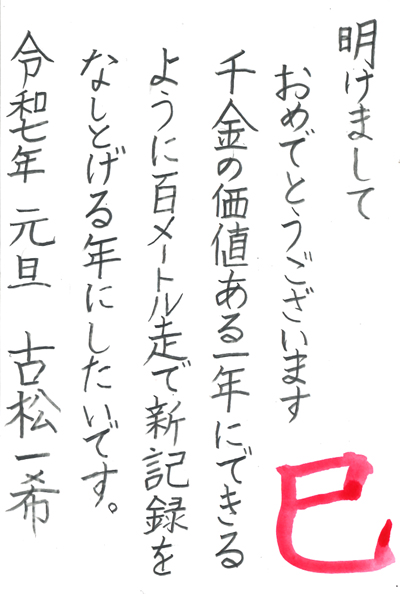 明けまして
おめでとうございます
千金の価値ある一年にできる
ように百メートル走で新記録を
なしとげる年にしたいです。
令和七年 元旦 古松一希
巳